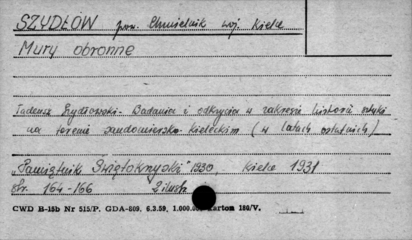 SZYDŁÓW pow. Chmielnik woj. Kielce
Mury obronne
Tadeusz Szydłowski - Badania i odkrycia w zakresie historii sztuki
na terenie sandomiersko-kieleckim (w latach ostatnich)
"Pamiętnik Świętokrzyski" 1930, Kielce 1931
str. 164-166 2 ilustr.
CWD B-15b Nr 515/P. GDA-809. 6.3.59, 1.000.000 karton 180/V.